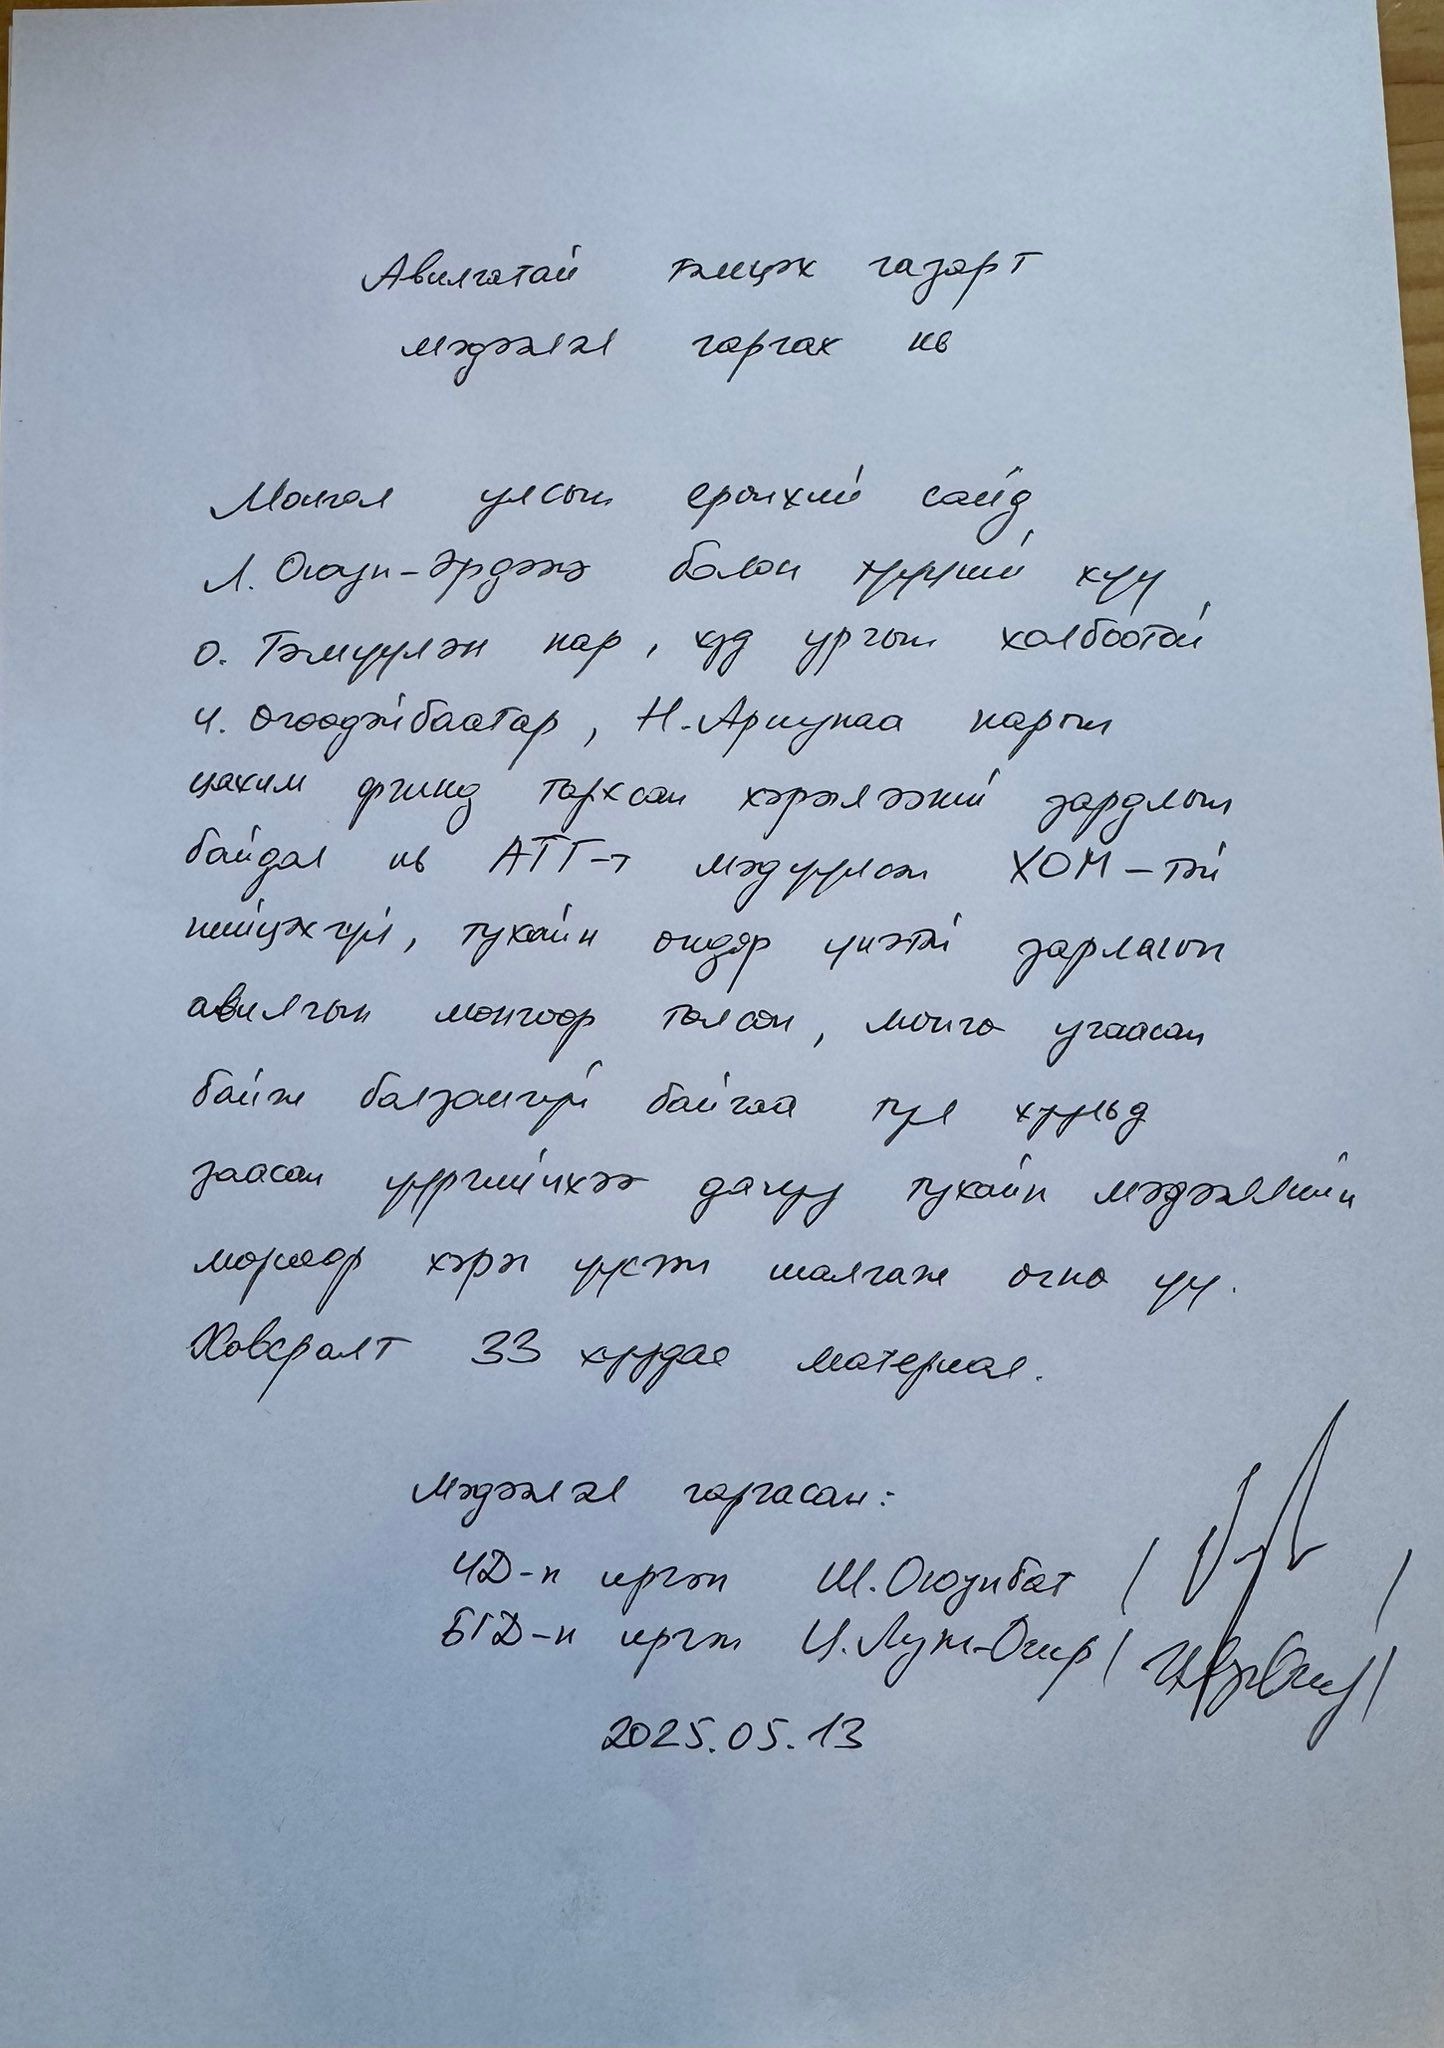 Авилгатай тэмцэх газарт
мэдээлэл гаргах нь
Монгол улсын ерөнхий сайд
Л. Оюун-Эрдэнэ болон түүний хүү
О. Тэмүүлэн нар, худ ургын холбоотой
Ч. Өгөөдэйбаатар, Н. Ариунаа нарын
цахим орчинд тархсан хэрэглээний зардлын
байдал нь АТГ-т мэдүүлсэн ХОМ-тэй
нийцэхгүй, тухайн өндөр үнэтэй зарлагыг
авилгын мөнгөөр төлсөн, мөнгө угаасан
байж болзошгүй байгаа тул хуульд
заасан үүргийнхээ дагуу тухайн мэдээллийн
мөрөөр хэрэг үүсгэн шалгаж өгнө үү.
Хавсралт 33 хуудас материал.
Мэдээлэл гаргасан:
ЧД-н иргэн Ш. Оюунбат / /
БГД-н иргэн Ц. Лувсан-Очир / /
2025.05.13